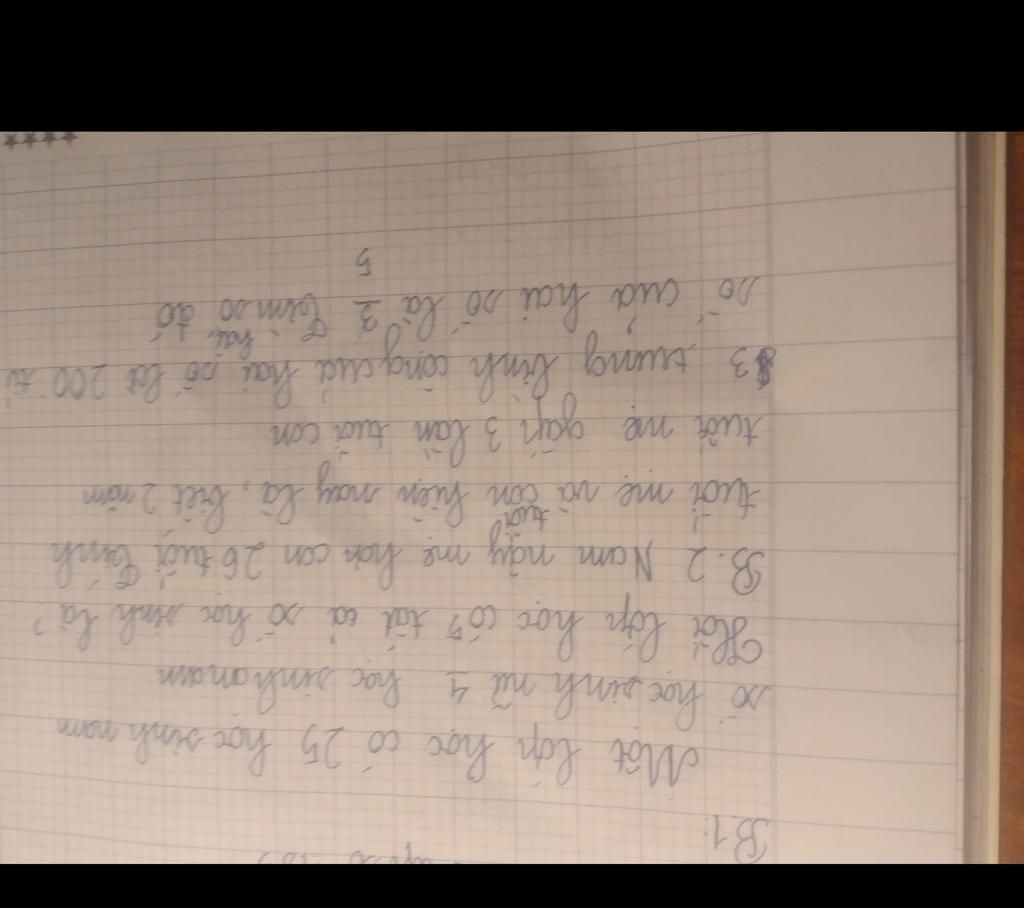 B.1
Một lớp học có 25 học sinh nam
số học sinh nữ 4 học sinh nam
Hỏi lớp học có? tất cả số học sinh là?
B.2 Nam này mẹ hơn con 26 tuổi Tính
tuổi
tuổi mẹ và con hiện nay là, biết 2 năm
tuổi mẹ gấp 3 lần tuổi con
3 trung bình cộng của hai số là 200 tỉ
hai
số của hai số là 2 Tìm số đó
5